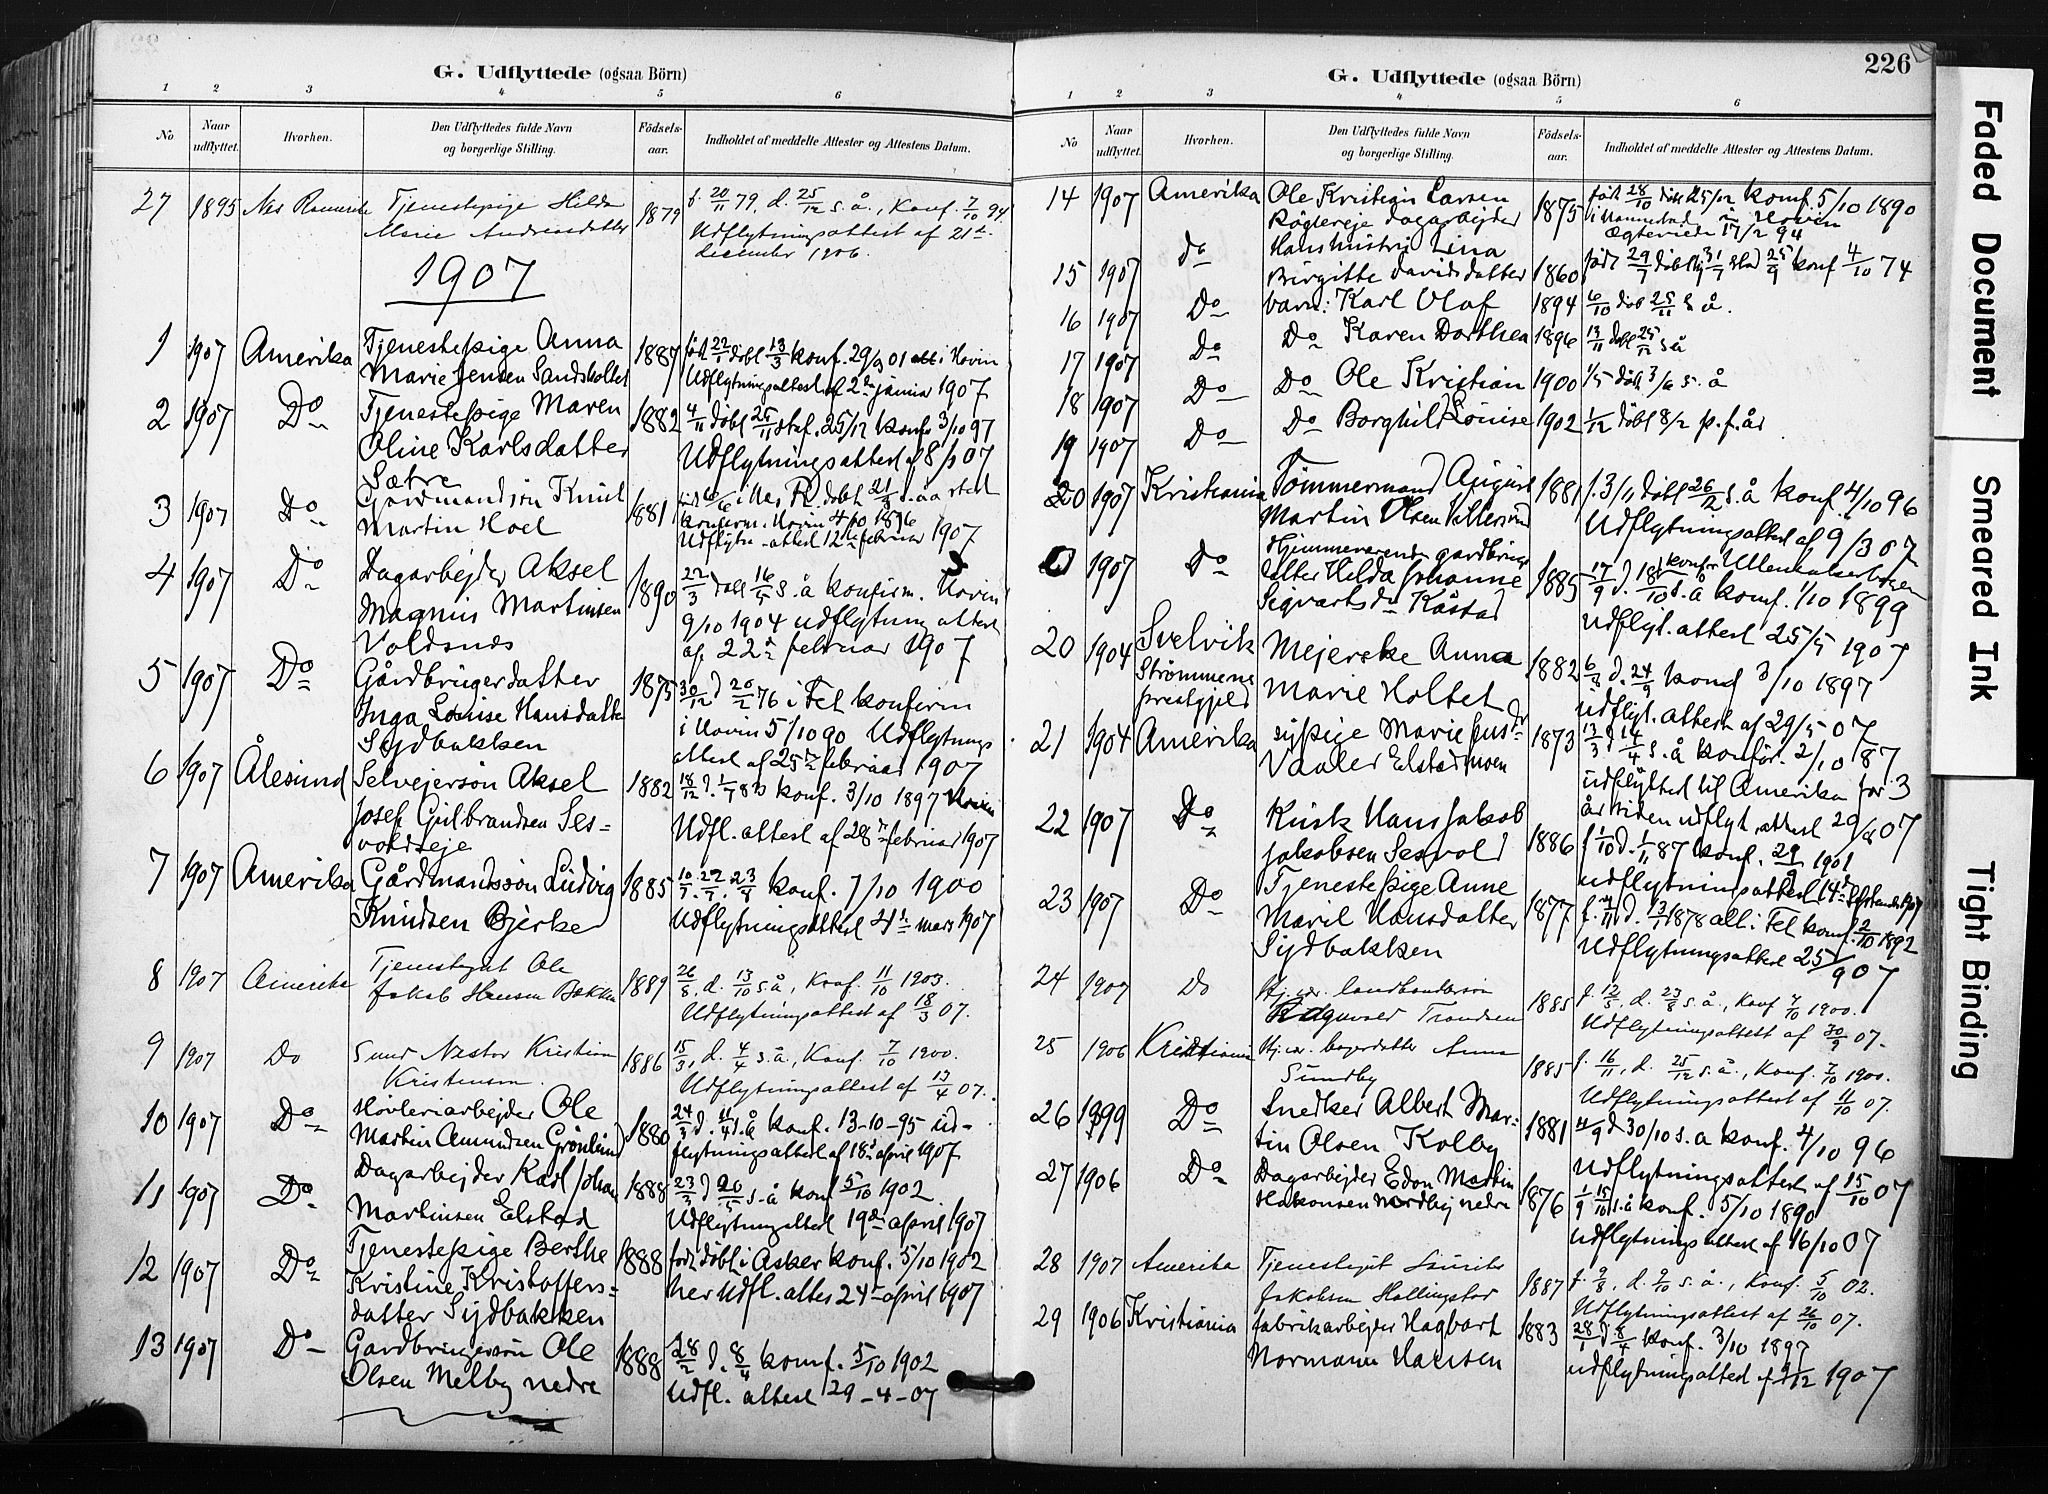 G. Udflyttede (ogsaa Börn)
1 2 3 4 5 6
No
Naar udflyttet.
Hvorhen.
Den Udflyttedes fulde Navn og borgerlige Stilling.
Födsels-aar.
Indholdet af meddelte Attester og Attestens Datum.
27 1895 Nes Romerike Tjenestepige Hilda 1879 f. 20/11 79, d. 25/12 s.å., Konf. 7/10 94.
Marie Andreasdatter Udflytningsattest af 21de
december 1906.
1907
1 1907 Amerika Tjenestepige Anna 1887 født 22/1 døbt 13/3 konf. 29/9 01 i Hovin
Marie Jensen Sandsholtet Udflytningsattest af 2den januar 1907
2 1907 Do Tjenestepige Maren 1882 4/11 døbt 25/11 staf. 25/12 konf 3/10 97
Oline Karlsdatter Udflytningsattest af 8/1 07
Sætre
3 1907 Do Gårdmandssøn Knut 1881 i Nes R. døbt 21/8 s.åa sted
Martin Hoel konfirm. Hovin 4/10 1896
Udflytn-attest 12te februar 1907
4 1907 Do Dagarbejder Aksel 1890 22/3 døbt 16/5 s.å konfirm. Hovin
Magnus Martinsen 9/10 1904 udflytning attest
Voldsnes af 22de februar 1907
5 1907 Do Gårdbrugerdatter 1875 30/12 d 20/2 76 i Fet konfirm
Inga Louise Hansdatter i Hovin 5/10 90 Udflytnings
Sydbakken attest af 25de februar 1907
6 1907 Ålesund Selvejersøn Aksel 1882 18/12 d. 1/1 83 konf. 3/10 1897 Hovin
Josef Gulbrandsen Ses= Udfl. attest af 28de februar 1907
voldseje
7 1907 Amerika Gårdmandssøn Ludvig 1885 10/7. 22/7. 23/8 konf. 7/10 1900
Knudsen Bjerke Udflytningsattest 4de mars 1907
8 1907 Amerika Tjenestegut Ole 1889 26/8, d. 13/10 s.å., Konf. 11/10 1903.
Jakob Hansen Bakken Udflytningsattest af 18/3 07.
9 1907 Do Smed Nestor Kristian 1886 15/3, d. 4/4 s.å., Konf. 7/10 1900.
Kristensen. Udflytningsattest af 13/4 07.
10 1907 Do Høvleriarbejder Ole 1880 24/3 d. 11/4 s.å konf. 13-10-95 ud-
Martin Amundsen Grönlund flytningsattest af 18de april 1907
11 1907 Do Dagarbejder Karl Johan 1888 23/3 d 20/5 s.å konf 5/10 1902
Martinsen Elstad Udflytningattest 19de april 1907
12 1907 Do Tjenestepige Berthe 1888 født døbt i Asker konf. 5/10 1902
Kristine Kristoffers= her Udfl. attes 24de april 1907
datter Sydbakken
13 1907 Do Gardbrugersøn Ole 1888 28/2 d. 8/4 konf. 5/10 1902
Olsen Melby nedre Udfl. attest 29-4-07
226
G. Udflyttede (ogsaa Börn)
1 2 3 4 5 6
No
Naar udflyttet.
Hvorhen.
Den Udflyttedes fulde Navn og borgerlige Stilling.
Födsels-aar.
Indholdet af meddelte Attester og Attestens Datum.
14 1907 Amerika Ole Kristian Larsen 1875 født 28/10 døbt 25/12 konf. 5/10 1890
dagarbejder i Hovin
Ægteviede 17/2 94
15 1907 do Hans hustru Lina 1860 født 29/7 døbt 31/7 stad 25/9 konf 4/10 74
Birgitte Davidsdatter
16 1907 Do barn: Karl Olaf 1894 6/10 døb 25/11 s å.
17 1907 Do Do Karen Dorthea 1896 13/11 døbt 25/12 s å
18 1907 Do Do Ole Kristian 1900 1/5 døbt 3/6 s. å
19 1907 Do Do Borghild Louise 1902 1/12 døbt 8/2 p. f. år
20 1907 Kristiania Tømmermand August 1881 f. 3/11 døbt 26/12 s. å konf. 4/10 96
Martin Olsen Udflytningsattest af 9/3 07
1907 Do Hjemmeværende gardbruger 1885 17/9 d. 18/10 s. å konf. 1/10 1899
datter Hilda Johanne
Sigvartsdr Kåstad udflyt. attest 25/5 1907
20 1904 Svelvik Mejerske Anna 1882 6/8 d. 24/9 konf 3/10 1897
Strømmens Marie Holtet udflyt. attest af 29/5 07
prestgjeld
21 1904 Amerika sypige Marie Jensdr 1873 13/3 d 14/4 s. å konfir. 2/10 87.
Vaaler Elstadmoen udflyttet til Amerika for 3
år siden udflyt. attest 20/8 07
22 1907 Do Kusk Hans Jakob 1886 f 1/10 d. 1/11 87 konf. 29/9 1901
Jakobsen Sesvold udflytningsattest 14de september 1907
23 1907 Do Tjenestepige Anne 1877 f. 4/11 d. 13/1 1878 alt i Fet konf. 2/10 1892
Maril Hansdatter Udflytningsattest 25/9 07
Sydbakken
24 1907 Do Hj. vær. landhandlersøn 1885 f. 12/5, d. 23/8 s. å., Konf 7/10 1900.
Trondsen Udflytningsattest af 30/9 07.
25 1906 Kristiania Hj. vær. bagerdatter Anna 1885 f. 16/11, d. 25/12 s. å., Konf. 7/10 1900.
Sundby Udflytningsattest af 11/10 07.
26 1899 Do Snedker Albert Mar- 1881 4/9 d 30/10 s. a konf. 4/10 96
tin Olsen Kolby Udflytningsattest af 15/10 07
27 1906 Do Dagarbejder Edon Martin 1876 1/9 15/10 s. å konf. 5/10 1890
Hakonsen Nordby nedre udflytnings attest af 16/10 07
28 1907 Amerika Tjenestegut Lauritz 1887 f. 9/8, d. 9/10 s. å., Konf. 5/10 02.
Jakobsen Hallingstad Udflytningsattest af 26/10 07.
29 1906 Kristiania fabrikarbejder Hagbart 1883 28/1 d 8/4 konf. 3/10 1897
Normann Hansen udflytningsattest af 9/12 1907
Faded Document
Smeared Ink
Tight Binding